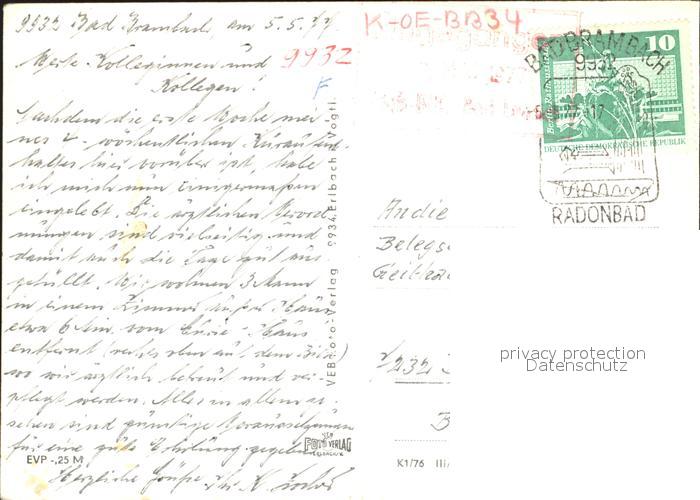 9932 Bad Brambach, am 5.5.77
Werte Kolleginnen und
Kollegen!
Nachdem die erste Woche mei-
nes 4-wöchentlichen Kuraufent-
haltes hier vorüber ist, habe
ich mich nun einigermaßen
eingelebt. Die ärztlichen Verord-
nungen sind vielseitig und
damit auch die Tage gut aus-
gefüllt. Wir wohnen 3 Mann
in einem Zimmer
etwa 6 Min. vom Haus
entfernt (rechts oben auf dem Bild)
wo wir ärztlich betreut und ver-
pflegt werden. Alles in allem ge-
sehen sind günstige Voraussetzungen
für eine gute Erholung gegeben.
Herzliche Grüße
EVP -,25 M
VEB Foto-Verlag 9934 Erlbach/Vogtl.
FOTO VERLAG
ERLBACH/V
9932
K-OE-BB34
BAD BRAMBACH
9932
RADONBAD
10
DEUTSCHE DEMOKRATISCHE REPUBLIK
An die
Belegs
7232
B
K1/76 III/
privacy protection
Datenschutz